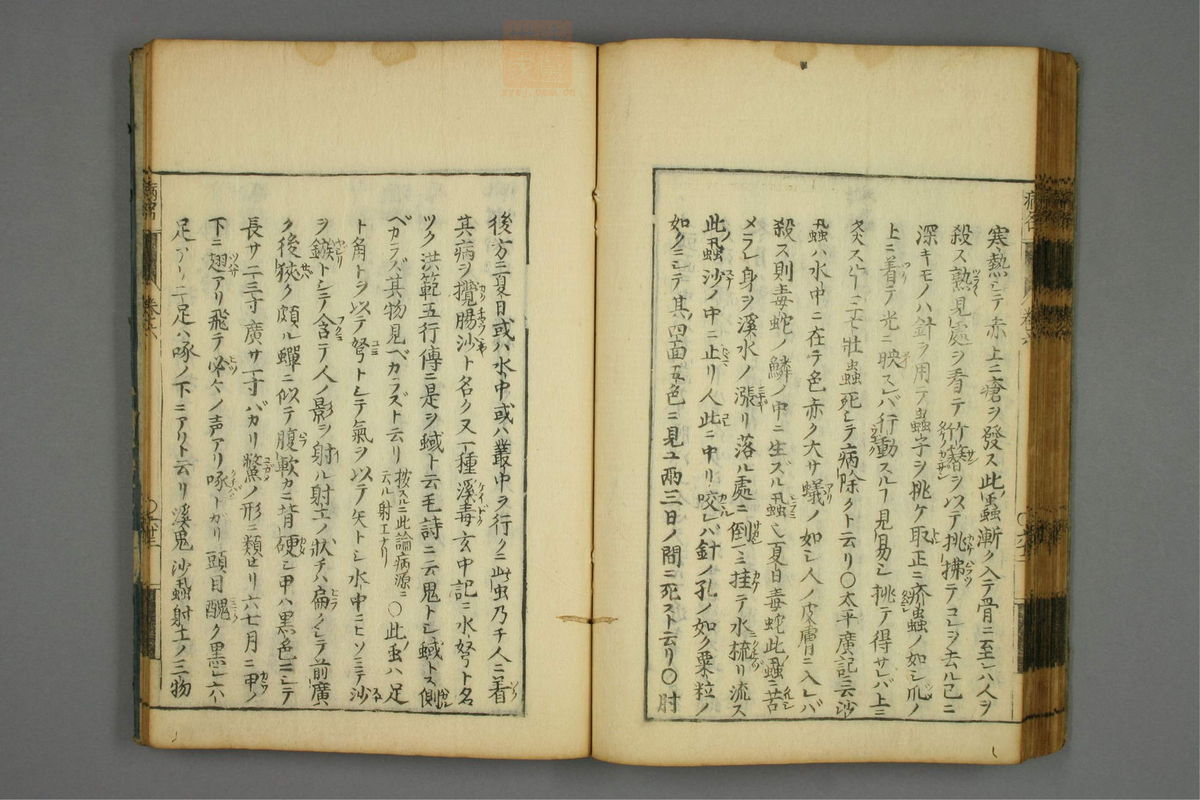 寒熱シテ赤上ニ瘡ヲ發ス此蟲漸ク入テ骨ニ至レハ人ヲ
殺ス熟見處ヲ看テ竹簪ヲ以テ挑拂テコレヲ去ル已ニ
深キモノハ針ヲ用テ蟲子ヲ挑ケ取正ニ疥蟲ノ如シ爪ノ
上ニ着テ光ニ映スレバ行動スルヿ見易シ挑テ得サレバ上ニ
灸スルヿ三七壯蟲死シテ病除クト云リ〇太平廣記ニ云沙
蝨ハ水中ニ在テ色赤ク大サ蟻ノ如シ人ノ皮膚ニ入レバ
殺ス則毒蛇ノ鱗ノ中ニ生ズル蝨也夏日毒蛇此蟲ニ苦
メラレ身ヲ溪水ノ漲リ落ル處ニ倒ニ挂テ水梳リ流ス
此蝨沙ノ中ニ止リ人此ニ中リ咬レバ針ノ孔ノ如ク粟粒ノ
如クニシテ其四面五色ニ見ユ兩三日ノ間ニ死スト云リ〇肘
後方ニ夏日或ハ水中或ハ叢中ヲ行クニ此虫乃チ人ニ着
其病ヲ攪腸沙ト名ク又一種溪毒玄中記ニ水弩ト名
ツク洪範五行傳ニ是ヲ蜮ト云毛詩ニ云鬼トシ蜮トス側
ベカラズ其物見ベカラズト云リ 按スルニ此論病源ニ云ル射工ナリ 〇此虫ハ足
ト角トヲ以テ弩トシテ氣ヲ以テ矢トシ水中ニヒソミテ沙
ヲ鏃トシテ含テ人ノ影ヲ射ル射工ノ狀チハ扁クシテ前廣
ク後狹ク頗ル蟬ニ似テ腹軟カニ背硬シ甲ハ黒色ニシテ
長サ二三寸廣サ一寸バカリ鱉ノ形ニ類セリ六七月ニ甲ノ
下ニ翅アリ飛テ必々ノ声アリ啄トカリ頭目醜ク黒シ六ハ
足アリ二足ハ啄ノ下ニアリト云リ溪鬼沙蝨射工ノ三物